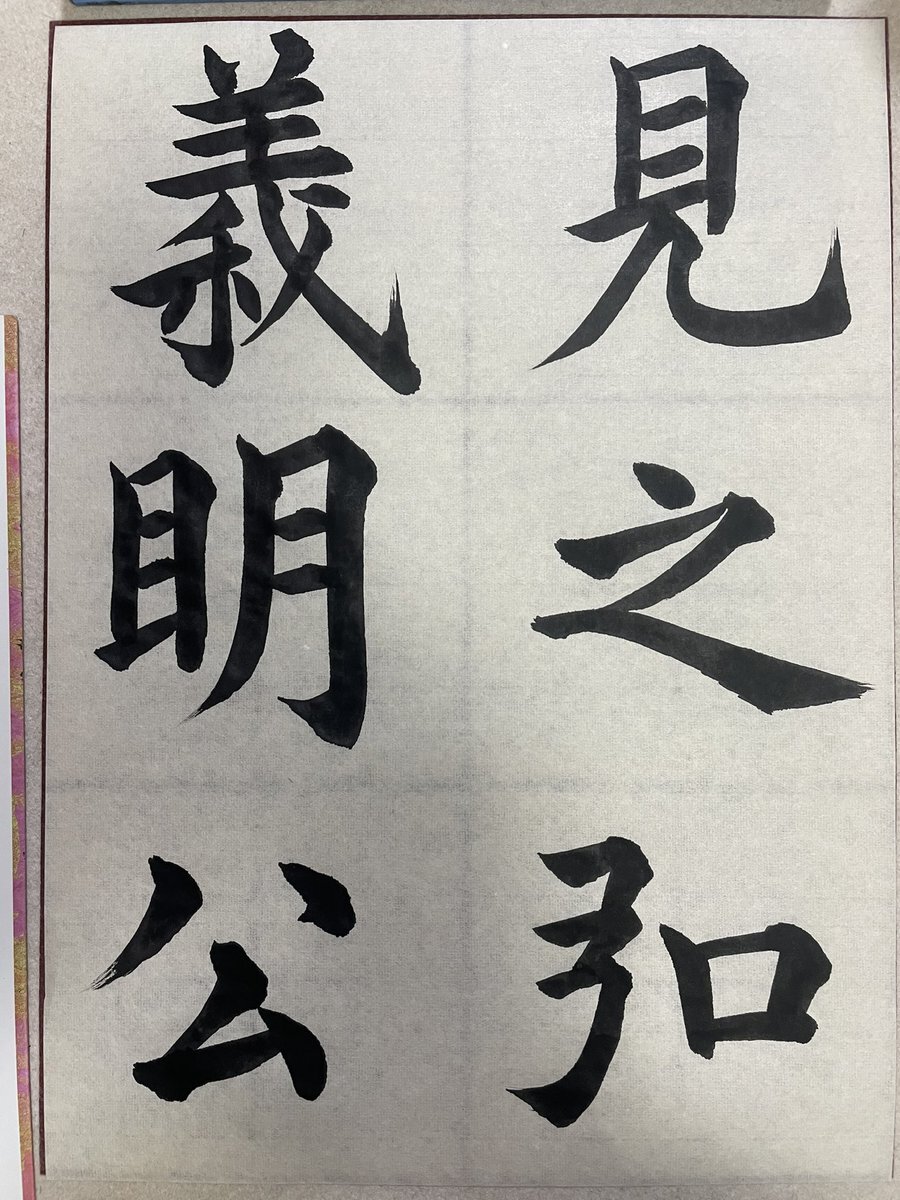 見之弘
義明公